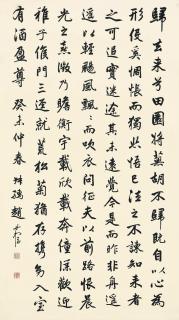 歸去来兮田園將蕪胡不歸既自以心為
形役奚惆悵而獨悲悟已往之不諫知来者
之可追實迷途其未遠覺今是而昨非舟遥
遥以輕颺風飄飄而吹衣問征夫以前路恨晨
光之熹微乃瞻衡宇載欣載奔僮僕歡迎
稚子候門三逕就荒松菊猶存攜幼入室
有酒盈尊 癸未仲春 趙